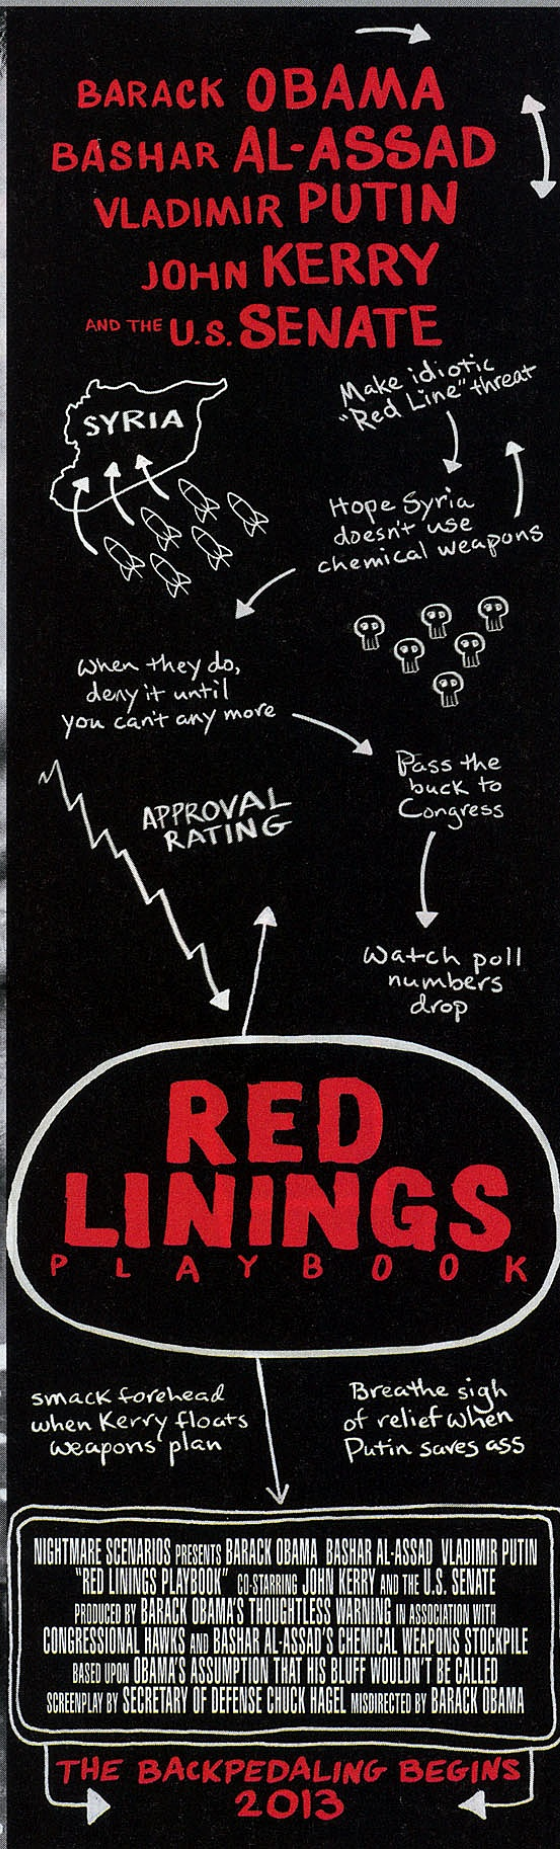 BARACK OBAMA
BASHAR AL-ASSAD
VLADIMIR PUTIN
JOHN KERRY
AND THE U.S. SENATE
SYRIA
Make idiotic
"Red Line" threat
Hope Syria
doesn't use
chemical weapons
when they do,
deny it until
you can't any more
Pass the
buck to
Congress
APPROVAL
RATING
Watch poll
numbers
drop
RED
LININGS
PLAYBOOK
smack forehead
when Kerry floats
weapons plan
Breathe sigh
of relief when
Putin saves ass
NIGHTMARE SCENARIOS PRESENTS BARACK OBAMA BASHAR AL-ASSAD VLADIMIR PUTIN
"RED LININGS PLAYBOOK" CO-STARRING JOHN KERRY AND THE U.S. SENATE
PRODUCED BY BARACK OBAMA'S THOUGHTLESS WARNING IN ASSOCIATION WITH
CONGRESSIONAL HAWKS AND BASHAR AL-ASSAD'S CHEMICAL WEAPONS STOCKPILE
BASED UPON OBAMA'S ASSUMPTION THAT HIS BLUFF WOULDN'T BE CALLED
SCREENPLAY BY SECRETARY OF DEFENSE CHUCK HAGEL MISDIRECTED BY BARACK OBAMA
THE BACKPEDALING BEGINS
2013